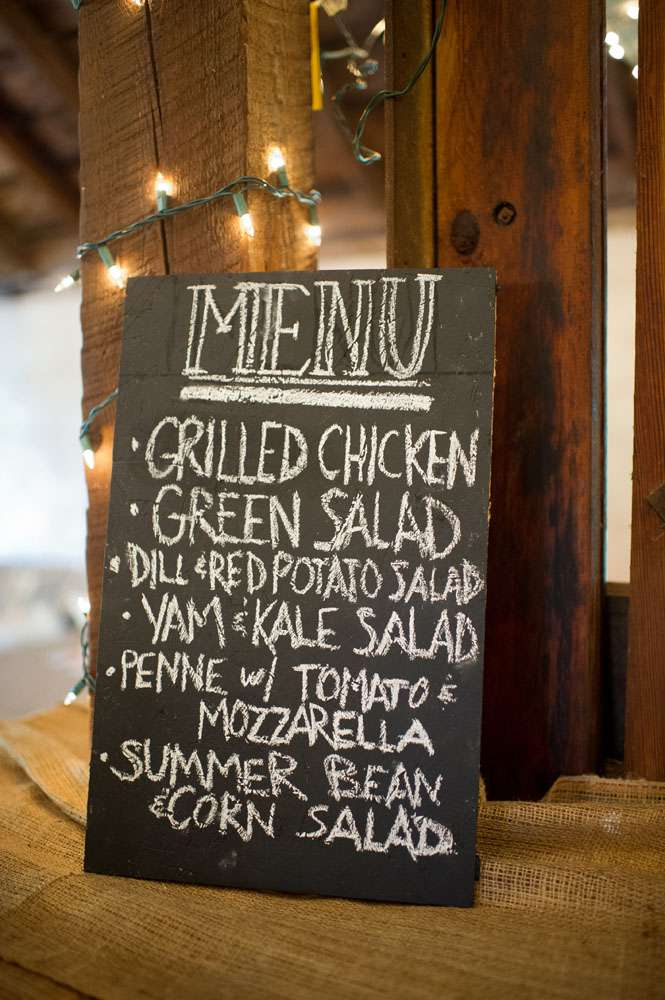 MENU
• GRILLED CHICKEN
• GREEN SALAD
• DILL & RED POTATO SALAD
• YAM & KALE SALAD
• PENNE w/ TOMATO &
MOZZARELLA
• SUMMER BEAN
& CORN SALAD